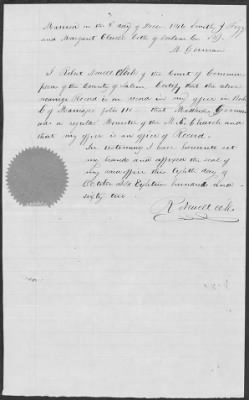 Married on the 8 day of Smith J
and Margaret both of Salem Co
M German
I Robert Newell Clerk of the Court of Common
pleas of the County of Salem Certify that the above
marriage Record is on record in my office in Book
of Marriages folio that Mathew German
was a regular Minister of the M. E. Church and
that my office is an office of Record.
In testimony I have hereunto set
my hand and affixed the seal of
my said office this Eighth day of
October Eighteen hundred and
sixty
R Newell clk